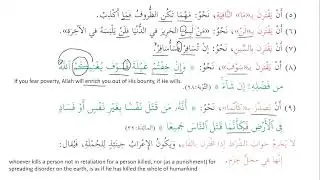 (٥) أَنْ يَقْتَرِنَ بِـ«مَا» النَّافِيَةِ، نَحْوُ: مَهْمَا تَكُنِ الظُّرُوفُ فَمَا أَكْذِبُ.
(٦) أَنْ يَقْتَرِنَ بِـ«لَنْ»، نَحْوُ: «مَنْ لَبِسَ الحَرِيرَ فِي الدُّنْيَا فَلَنْ يَلْبَسَهُ فِي الآخِرَةِ».
(٧) أَنْ يَقْتَرِنَ بِالسِّينِ، نَحْوُ: إِنْ تُسَافِرْ فَسَأُسَافِرُ.
(٨) أَنْ يَقْتَرِنَ بِـ«سَوْفَ»، نَحْوُ: ﴿وَإِنْ خِفْتُمْ عَيْلَةً فَسَوْفَ يُغْنِيكُمُ اللَّهُ
If you fear poverty, Allah will enrich you out of His bounty, if He wills.
مِن فَضْلِهِ إِن شَاءَ﴾ (التوبة: ٢٨).
(٩) أَنْ يَتَصَدَّرَ بِـ«كَأَنَّمَا»، نَحْوُ: ﴿أَنَّهُ مَن قَتَلَ نَفْسًا بِغَيْرِ نَفْسٍ أَوْ فَسَادٍ
فِي الْأَرْضِ فَكَأَنَّمَا قَتَلَ النَّاسَ جَمِيعًا﴾ (المائدة: ٣٢).
whoever kills a person not in retaliation for a person killed, nor (as a punishment) for
spreading disorder on the earth, is as if he has killed the whole of humankind
جَوَابُ الشَّرْطِ إِذَا اقْتَرَنَ بِالْفَاءِ، وَيَكُونُ الإِعْرَابُ حِينَئِذٍ لِلْجُمْلَةِ، فَيُقَالُ:
إِنَّهَا فِي مَحَلِّ جَزْمٍ.